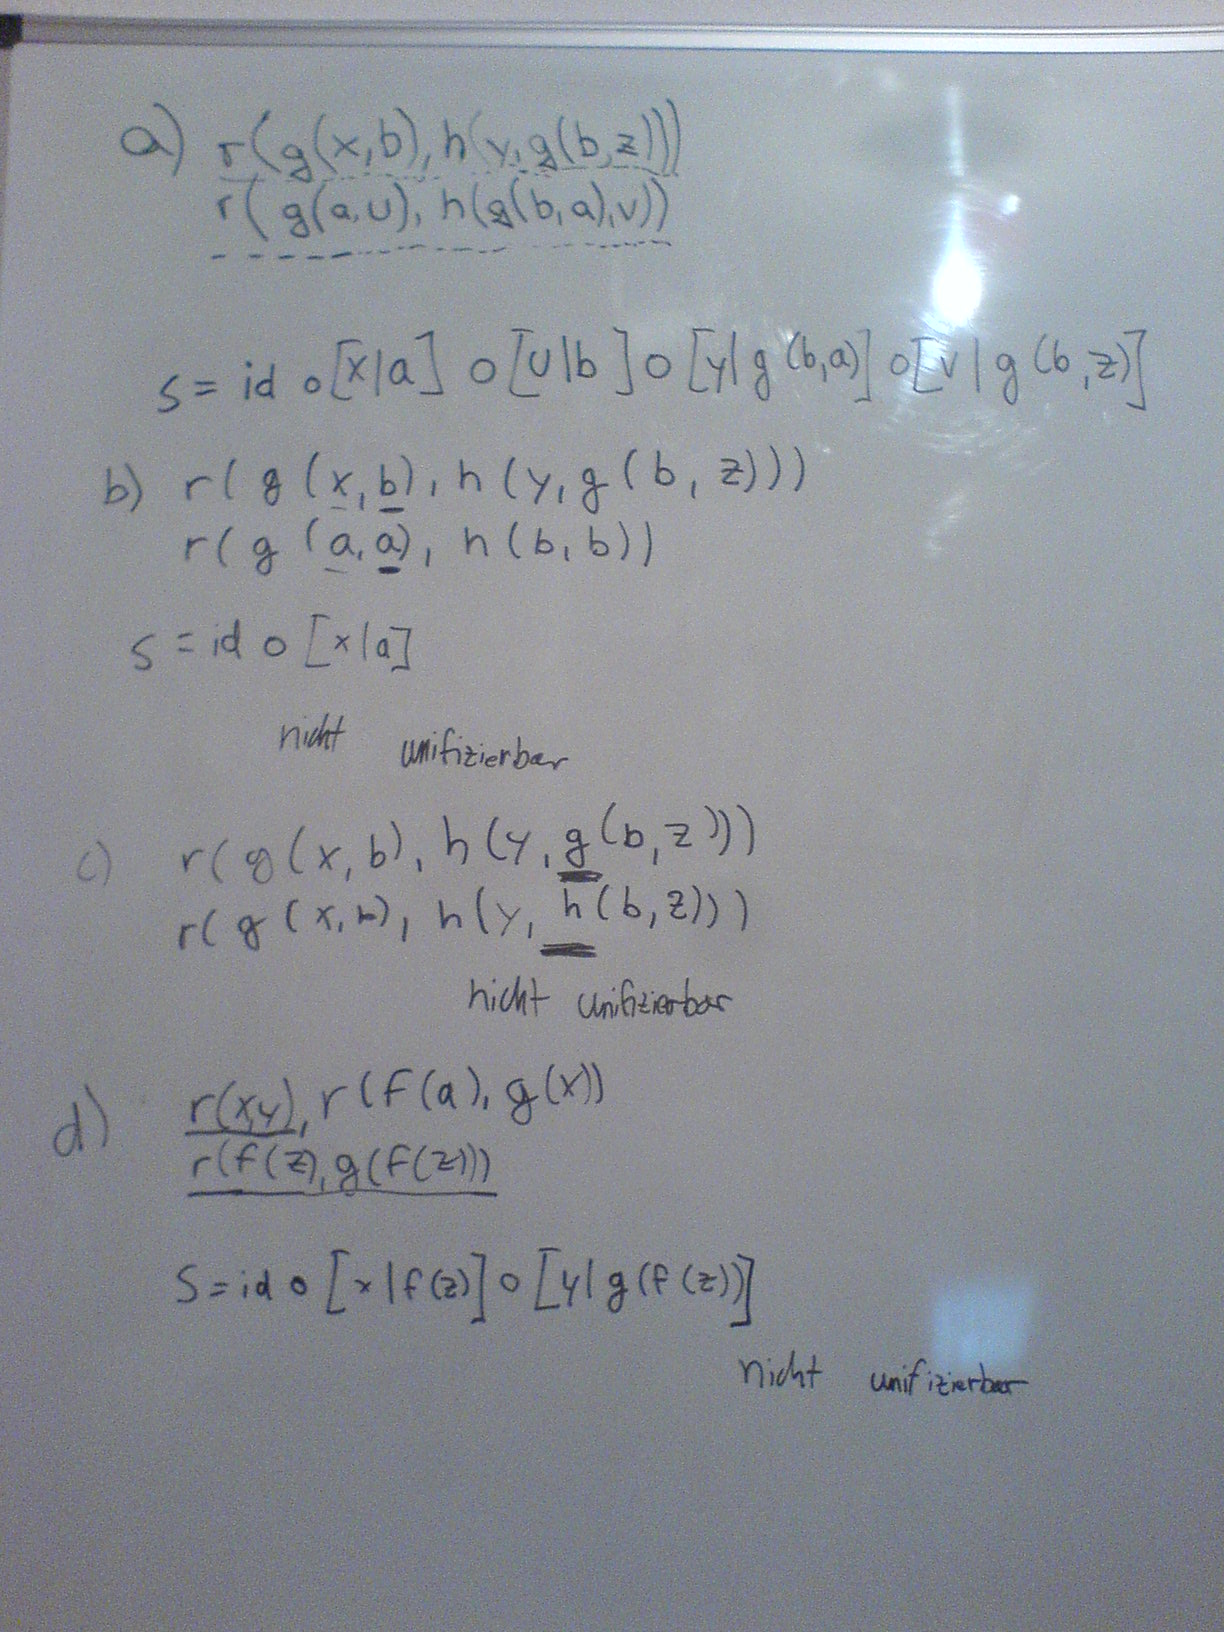 a) r(g(x,b),h(y,g(b,z)))
r(g(a,u),h(g(b,a),v))
s = id o [x|a] o [u|b] o [y|g(b,a)] o [v|g(b,z)]
b) r(g(x,b),h(y,g(b,z)))
r(g(a,a),h(b,b))
s = id o [x|a]
nicht unifizierbar
c) r(g(x,b),h(y,g(b,z)))
r(g(x,b),h(y,h(b,z)))
nicht unifizierbar
d) r(x,y),r(f(a),g(x))
r(f(z),g(f(z)))
S = id o [x|f(z)] o [y|g(f(z))]
nicht unifizierbar